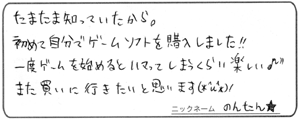 たまたま知っていたから。
初めて自分でゲームソフトを購入しました!!
一度ゲームを始めるとハマってしまうくらい楽しい♫"
また買いに行きたいと思います(*^u^*)/
ニックネーム のんたん★